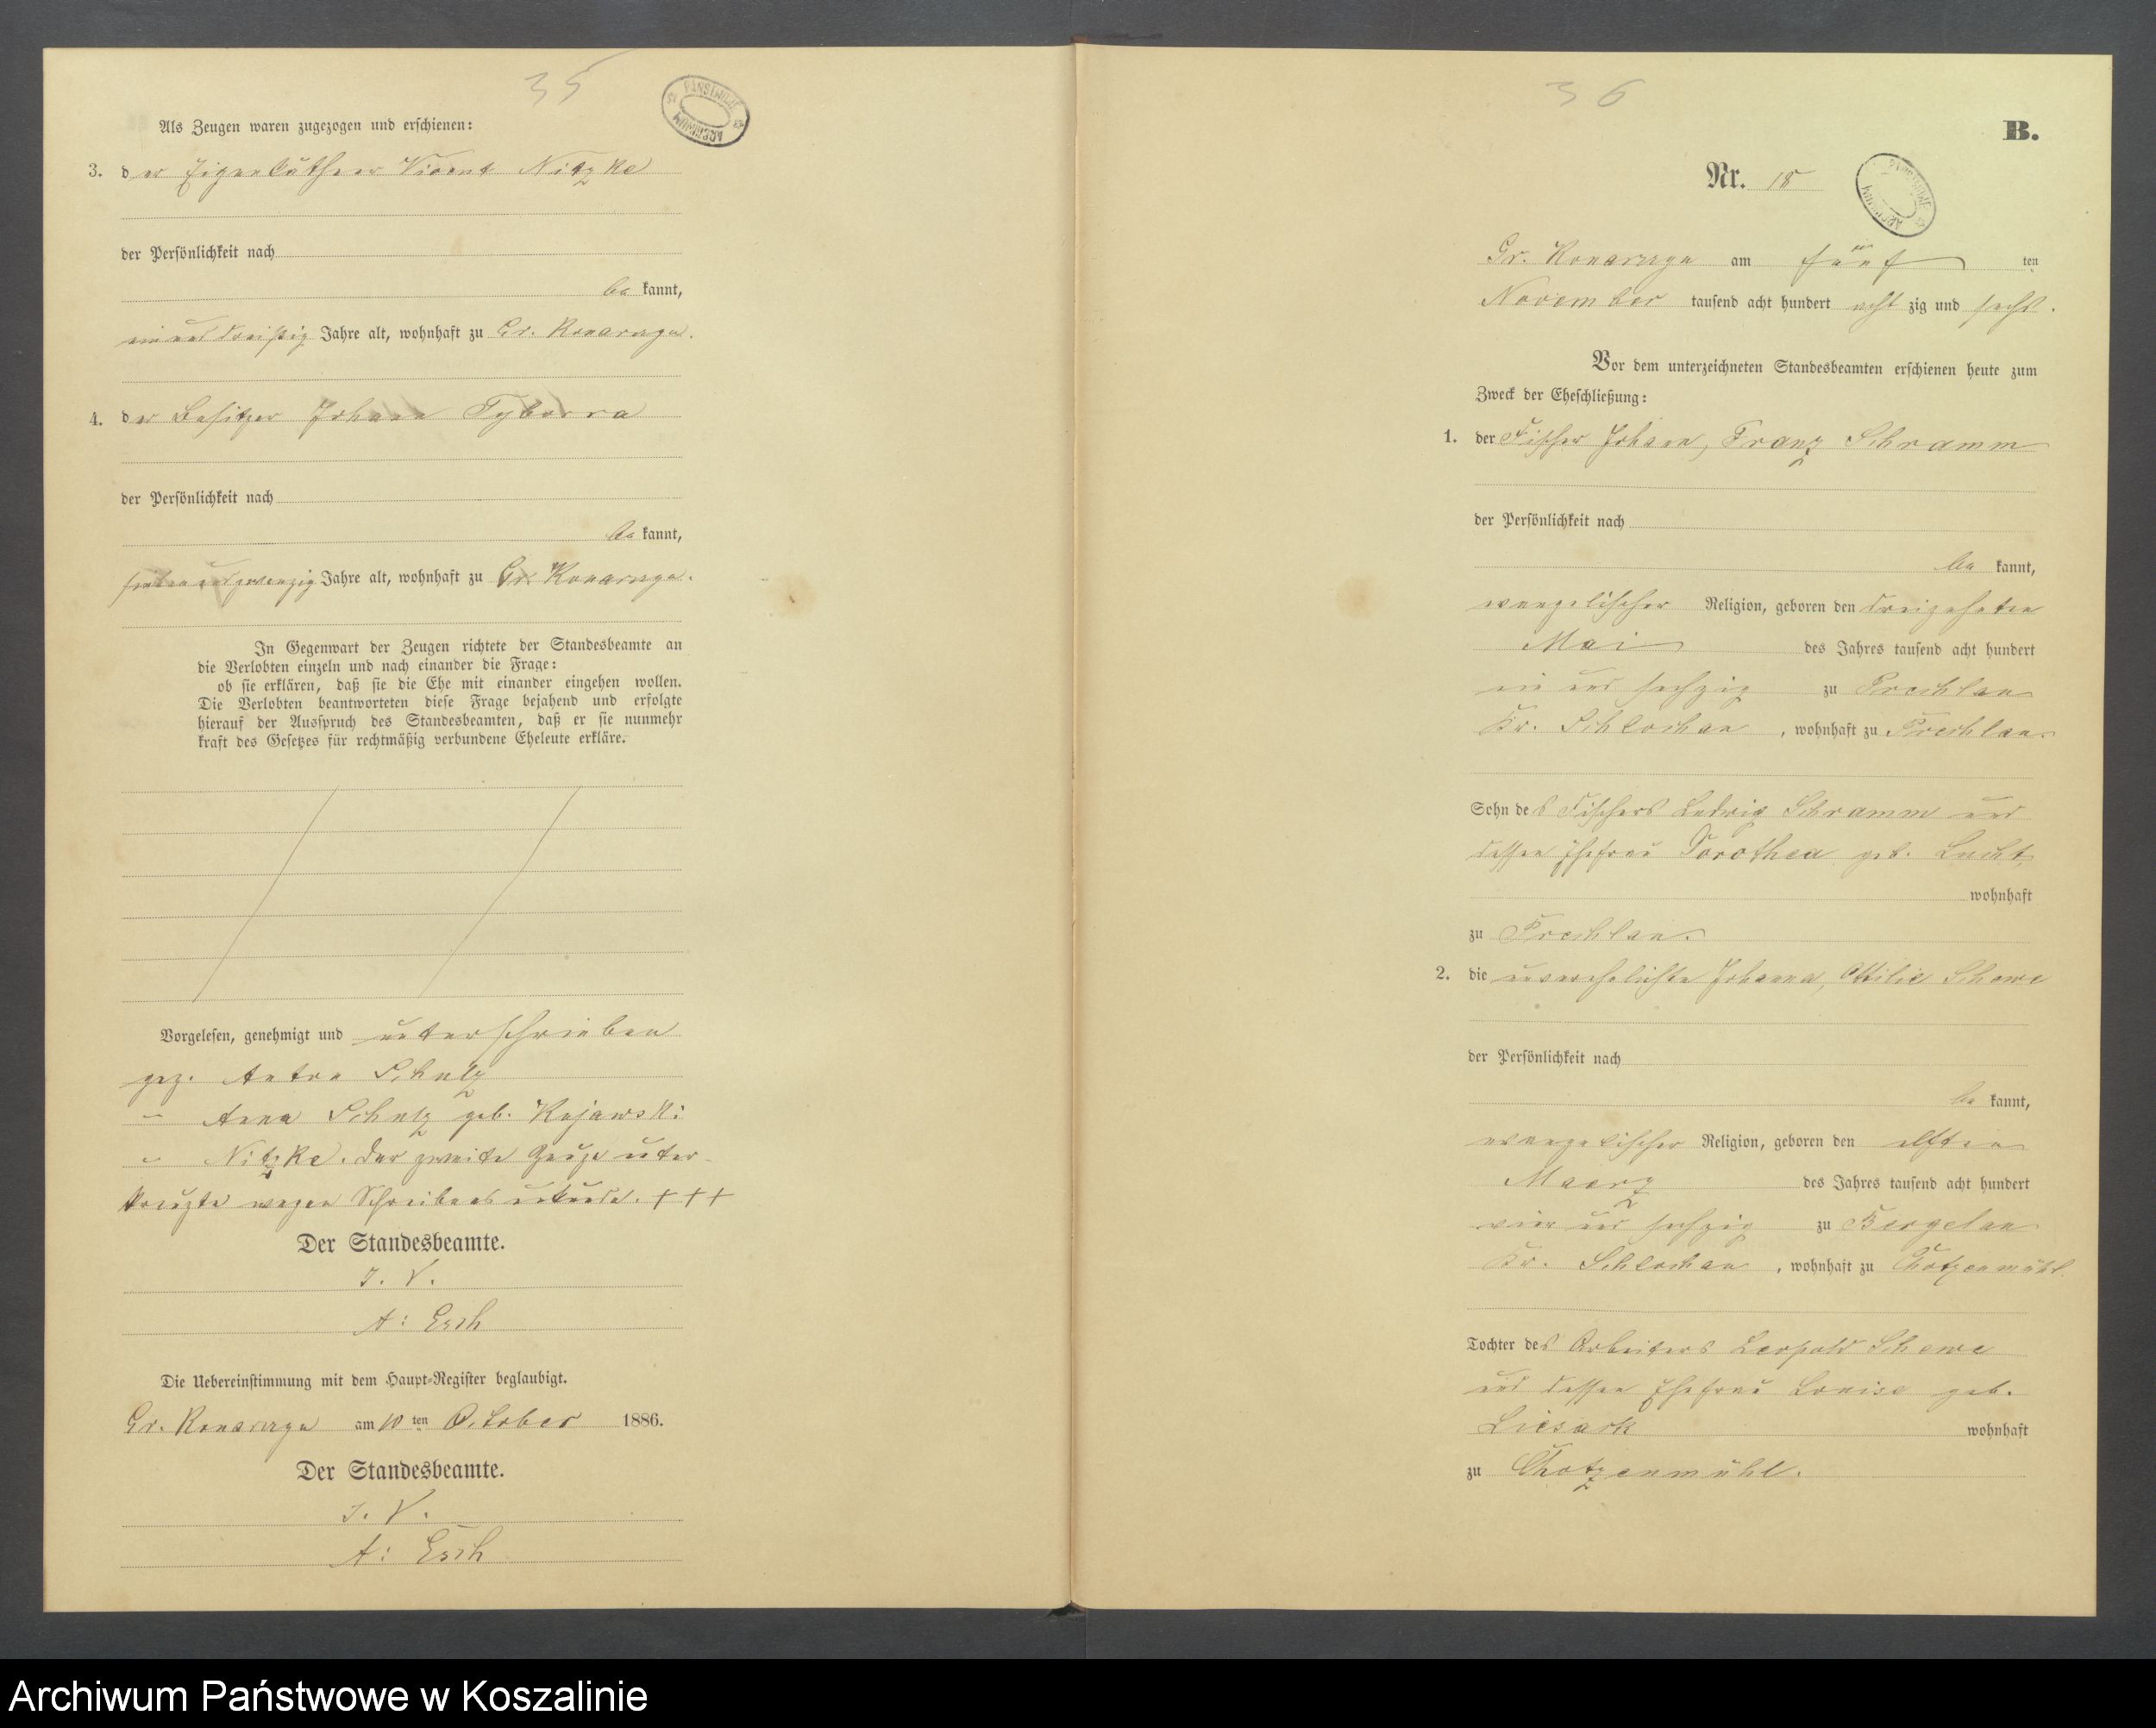 35
PAŃSTWOWE ARCHIWUM
Als Zeugen waren zugezogen und erschienen:
3. der Eigenkäthner Vicent Nitzke
der Persönlichkeit nach
be kannt,
ein und dreißig Jahre alt, wohnhaft zu Gr. Konarczyn.
4. der Besitzer Johann Tyborra
der Persönlichkeit nach
be kannt,
sieben und zwanzig Jahre alt, wohnhaft zu Gr. Konarczyn.
In Gegenwart der Zeugen richtete der Standesbeamte an
die Verlobten einzeln und nach einander die Frage:
ob sie erklären, daß sie die Ehe mit einander eingehen wollen.
Die Verlobten beantworteten diese Frage bejahend und erfolgte
hierauf der Ausspruch des Standesbeamten, daß er sie nunmehr
kraft des Gesetzes für rechtmäßig verbundene Eheleute erkläre.
Vorgelesen, genehmigt und unterschrieben
gez. Anton Schulz
" Anna Schulz geb. Kujawski
" Nitzke. Der zweite Zeuge unter-
kreuzte wegen Schreibensunkunde. +++
Der Standesbeamte.
I. V.
A: Esch
Die Uebereinstimmung mit dem Haupt-Register beglaubigt.
Gr. Konarczyn am 10 ten October 1886.
Der Standesbeamte.
I. V.
A: Esch
36
B.
Nr. 18
PAŃSTWOWE ARCHIWUM
Gr. Konarczyn am fünf ten
November tausend acht hundert acht zig und sechs.
Vor dem unterzeichneten Standesbeamten erschienen heute zum
Zweck der Eheschließung:
1. der Fischer Johann, Franz Schramm
der Persönlichkeit nach
be kannt,
evangelischer Religion, geboren den dreizehnten
Mai des Jahres tausend acht hundert
ein und sechzig zu Prechlau
Kr. Schlochau, wohnhaft zu Prechlau.
Sohn des Fischers Ludwig Schramm und
dessen Ehefrau Dorothea geb. Lucht
wohnhaft
zu Prechlau.
2. die unverehelichte Johanna, Ottilie Schewe
der Persönlichkeit nach
be kannt,
evangelischer Religion, geboren den elften
Maerz des Jahres tausend acht hundert
vier und sechzig zu Bergelau
Kr. Schlochau, wohnhaft zu Chotzenmühl.
Tochter des Arbeiters Leopold Schewe
und dessen Ehefrau Louise geb.
Liesack wohnhaft
zu Chotzenmühl.
Archiwum Państwowe w Koszalinie